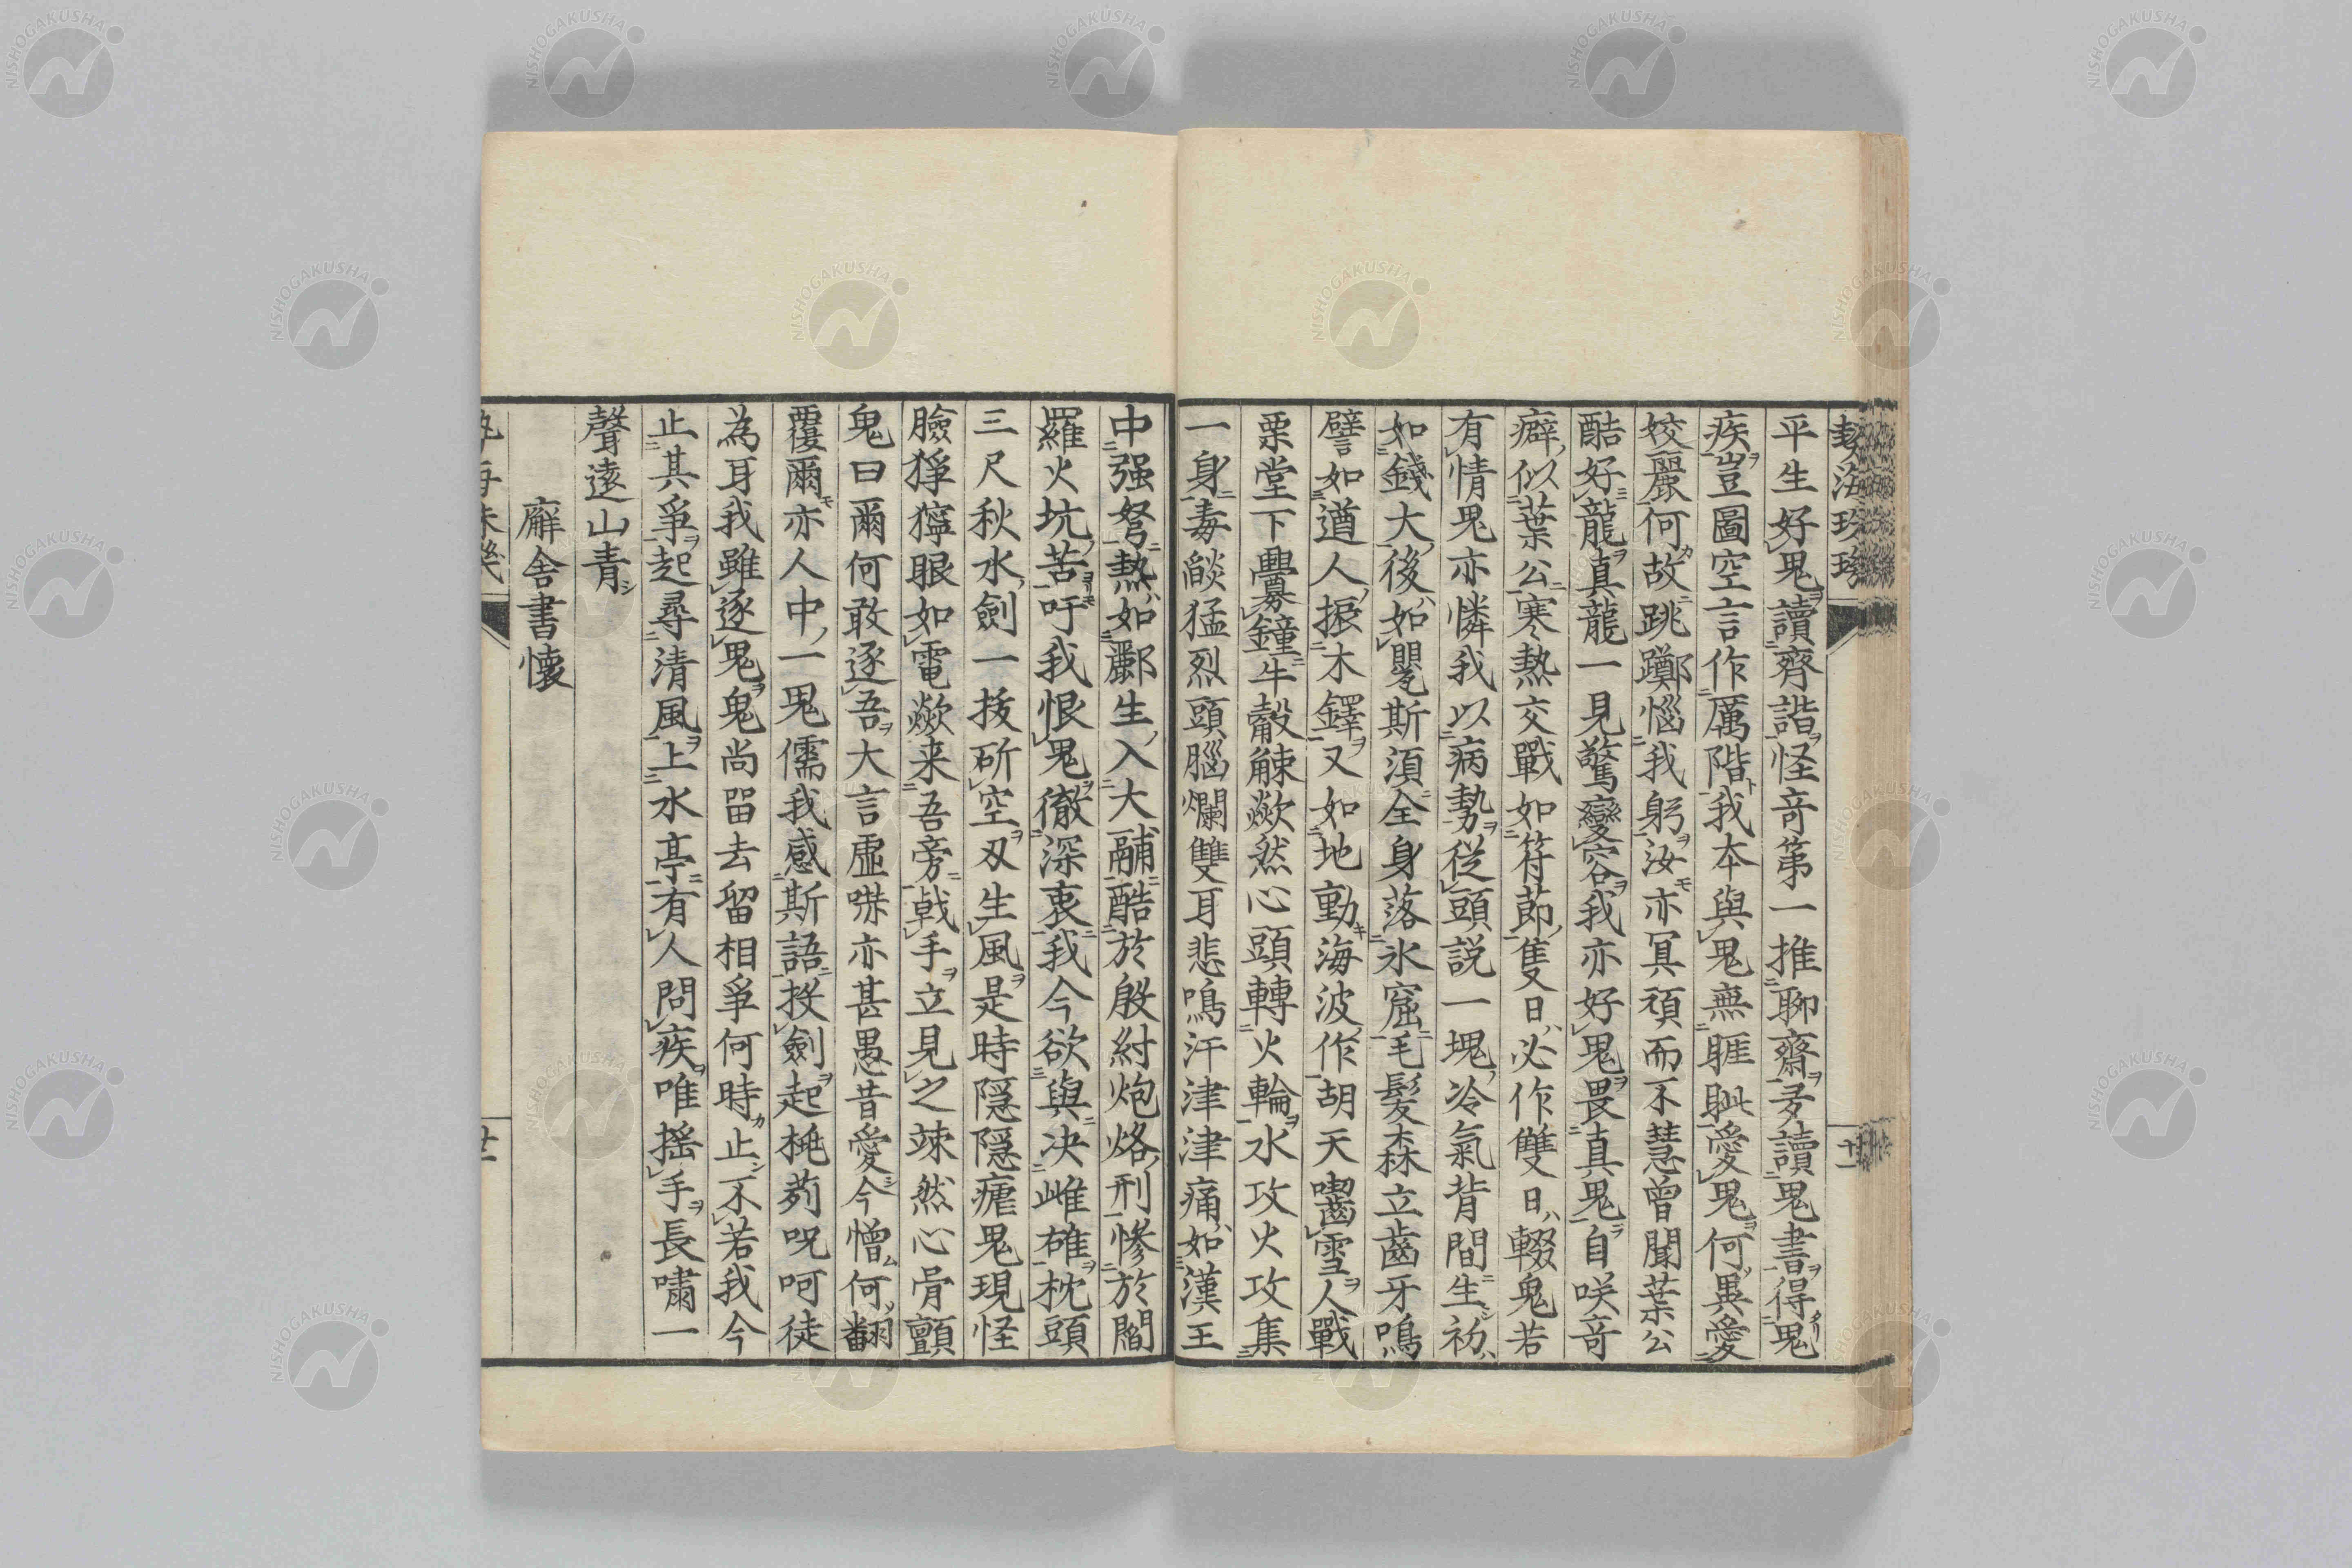 平生好鬼讀齊諧怪竒第一推聊齋多讀鬼書得鬼
疾豈圖空言作厲階我本與鬼無睚眦愛鬼何異愛
姣麗何故跳躑惱我躬汝亦冥頑而不慧曾聞葉公
酷好龍真龍一見驚變容我亦好鬼畏真鬼自咲竒
癖似葉公寒熱交戰如符節隻日必作雙日輟鬼若
有情鬼亦憐我以病勢從頭説一塊冷氣背間生初
如錢大後如瞿斯須全身落氷窟毛髮森立齒牙鳴
譬如遒人振木鐸又如地動海波作胡天囓雪人戰
栗堂下釁鐘牛觳觫歘然心頭轉火輪水攻火攻集
一身毒燄猛烈頭腦爛雙耳悲鳴汗津津痛如漢王
中强弩熱如酈生入大鬴酷於殷紂炮烙刑慘於閻
羅火坑苦吁我恨鬼徹深衷我今欲與决雌雄枕頭
三尺秋水劍一拔斫空刄生風是時隱隱瘧鬼現怪
臉猙獰眼如電歘来吾旁戟手立見之竦然心骨顫
鬼曰爾何敢逐吾大言虛喝亦甚愚昔愛今憎何翻
覆爾亦人中一鬼儒我感斯語投劍起桃茢呪呵徒
為耳我雖逐鬼鬼尚畱去留相爭何時止不若我今
止其爭起尋清風上水亭有人問疾唯揺手長嘯一
聲遠山青
廨舍書懷